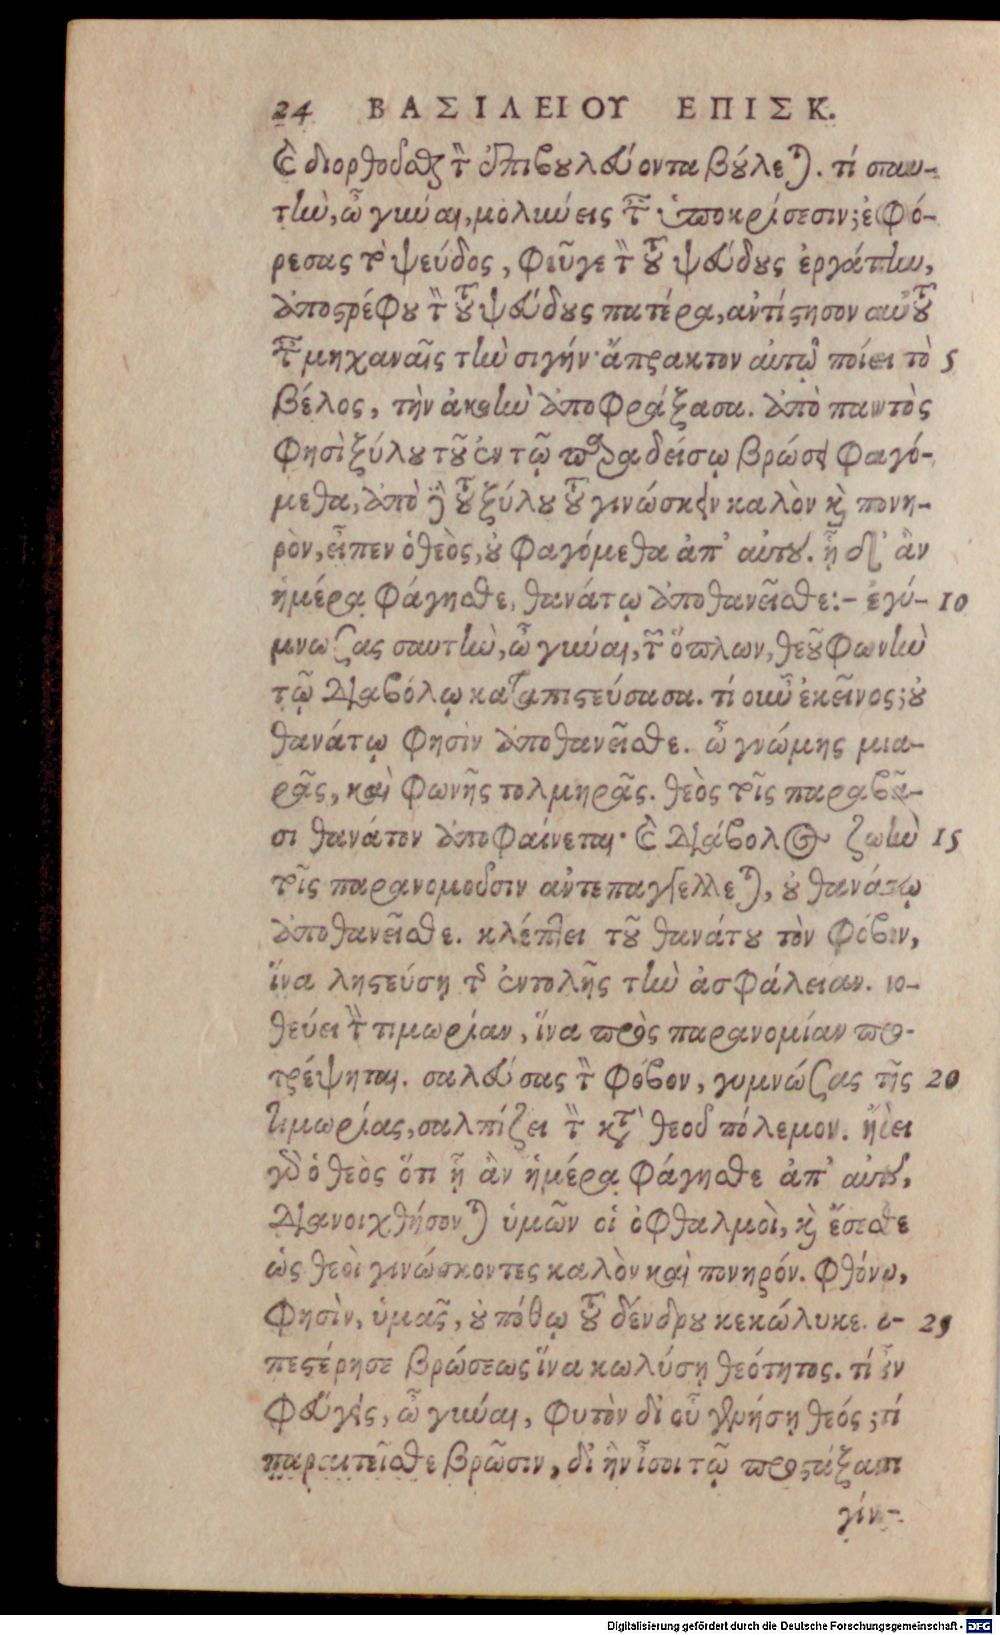 24 ΒΑΣΙΛΕΙΟΥ ΕΠΙΣΚ.
καὶ διορθοῦσθαι τὸν ἐπιβουλεύοντα βούλεται. τί σαυ-
τὴν, ὦ γύναι, μολύνεις ταῖς ὑποκρίσεσιν; ἐφό-
ρεσας τὸ ψεύδος, φεῦγε τὸν τοῦ ψεύδους ἐργάτην,
ἀποστρέφου τὸν τοῦ ψεύδους πατέρα, ἀντίστησον αὐτοῦ
ταῖς μηχαναῖς τὴν σιγήν· ἄπρακτον αὐτῷ ποίει τὸ 5
βέλος, τὴν ἀκοὴν ἀποφράξασα. ἀπὸ παντὸς
φησὶ ξύλου τοῦ ἐν τῷ παραδείσῳ βρώσει φαγό-
μεθα, ἀπὸ δὲ τοῦ ξύλου τοῦ γινώσκειν καλὸν καὶ πονη-
ρὸν, εἶπεν ὁ θεὸς, οὐ φαγόμεθα ἀπ' αὐτοῦ. ᾗ δ' ἂν
ἡμέρᾳ φάγησθε, θανάτῳ ἀποθανεῖσθε:- ἐγύ- 10
μνωσας σαυτὴν, ὦ γύναι, τῶν ὅπλων, θεοῦ φωνὴν
τῷ διαβόλῳ καταπιστεύσασα. τί οὖν ἐκεῖνος; οὐ
θανάτῳ φησὶν ἀποθανεῖσθε. ὦ γνώμης μια-
ρᾶς, καὶ φωνῆς τολμηρᾶς. θεὸς τοῖς παραβᾶ-
σι θάνατον ἀποφαίνεται· καὶ διάβολος ζωὴν 15
τοῖς παρανομοῦσιν ἀντεπαγγέλλεται, οὐ θανάτῳ
ἀποθανεῖσθε. κλέπτει τοῦ θανάτου τὸν φόβον,
ἵνα λῃστεύσῃ τῆς ἐντολῆς τὴν ἀσφάλειαν. νο-
θεύει τὴν τιμωρίαν, ἵνα πρὸς παρανομίαν προ-
τρέψηται. σαλεύσας τὸν φόβον, γυμνώσας τῆς 20
τιμωρίας, σαλπίζει τὸν κατὰ θεοῦ πόλεμον. ᾔδει
γὰρ ὁ θεὸς ὅτι ᾗ ἂν ἡμέρᾳ φάγησθε ἀπ' αὐτοῦ,
διανοιχθήσονται ὑμῶν οἱ ὀφθαλμοὶ, καὶ ἔσεσθε
ὡς θεοὶ γινώσκοντες καλὸν καὶ πονηρόν. φθόνῳ,
φησὶν, ὑμᾶς, οὐ πόθῳ τοῦ δένδρου κεκώλυκε. ἀ- 25
πεστέρησε βρώσεως ἵνα κωλύσῃ θεότητος. τί οὖν
φεύγεις, ὦ γύναι, φυτὸν δι' οὗ γενήσῃ θεός; τί
παραιτεῖσθε βρῶσιν, δι' ἣν ἴσοι τῷ προστάξαντι
γίν-
Digitalisierung gefördert durch die Deutsche Forschungsgemeinschaft - DFG